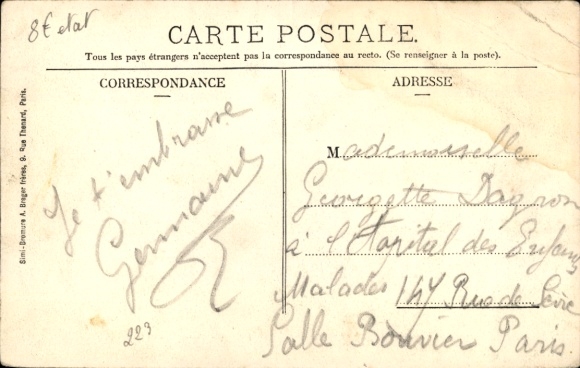 8€ etat
CARTE POSTALE.
Tous les pays étrangers n'acceptent pas la correspondance au recto. (Se renseigner à la poste).
CORRESPONDANCE
Je t'embrasse
Germaine
223
Simi-Bromure A. Breger frères, 9, Rue Thenard, Paris.
ADRESSE
Mademoiselle
Georgette Dagron
à l'Hopital des Enfants
Malades 147 Rue de Sèvre
Salle Bouvier Paris.